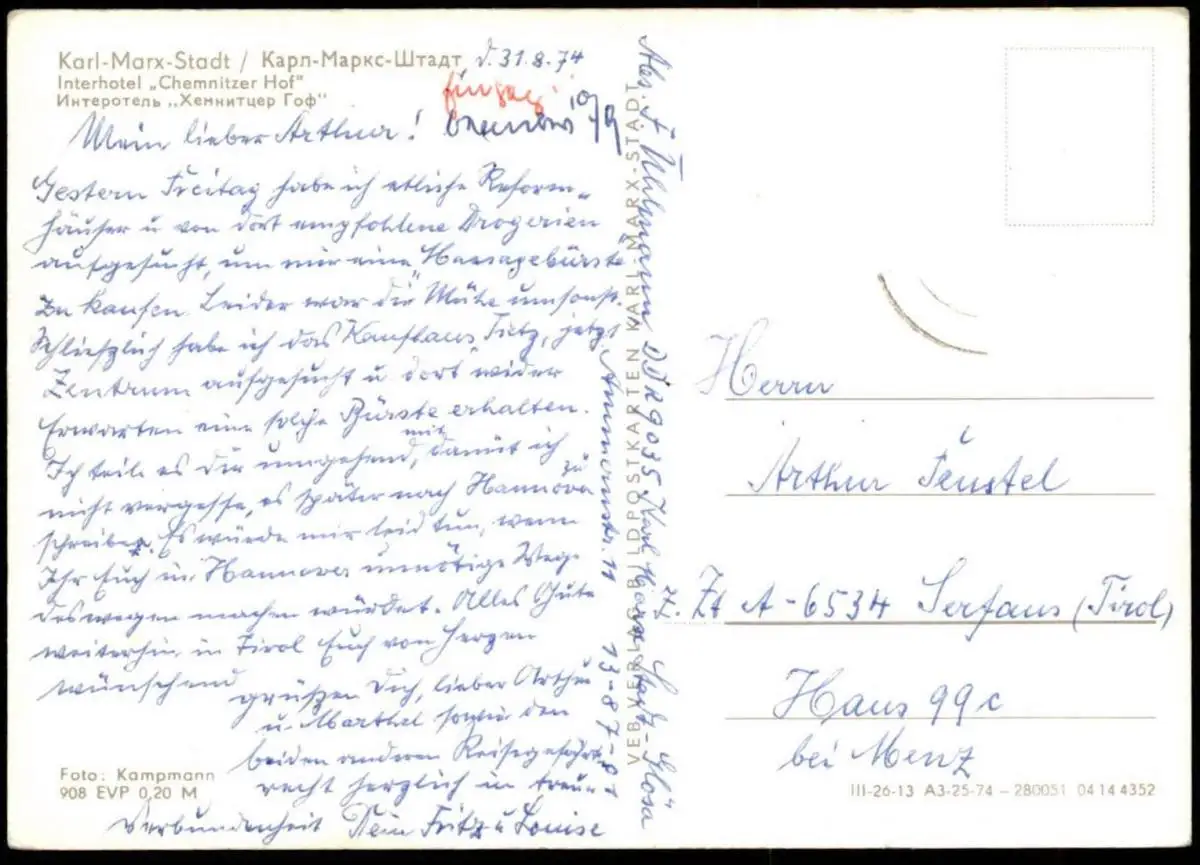 Karl-Marx-Stadt / Карл-Маркс-Штадт d. 31.8.74
Interhotel „Chemnitzer Hof"
Интеротель „Хемнитцер Гоф"
Mein lieber Arthur!
Gestern Freitag habe ich etliche Reform-
häuser u von dort empfohlene Drogerien
aufgesucht, um mir eine Massagebürste
zu kaufen. Leider war die Mühe umsonst.
Schließlich habe ich das Kaufhaus Tietz, jetzt
Zentrum aufgesucht u dort wider
Erwarten eine solche Bürste erhalten.
Ich teile es Dir umgehend mit, damit ich
nicht vergesse, es später nach Hannover zu
schreiben. Es würde mir leid tun, wenn
Ihr Euch in Hannover unnötige Wege
deswegen machen würdet. Alles Gute
weiterhin in Tirol Euch von Herzen
wünschend
grüßen Dich, lieber Arthur
u. Marthel sowie den
beiden anderen Reisegefährten
recht herzlich in treuer
Verbundenheit Dein Fritz u Louise
Foto: Kampmann
908 EVP 0,20 M
Abs. F. Uhlmann DDR 9035 Karl Marx Stadt-Glösa
VEB VERLAG BILDPOSTKARTEN KARL-MARX-STADT
Herrn
Arthur Feustel
z. Zt A-6534 Serfaus (Tirol)
Haus 99c
bei Menz
III-26-13 A3-25-74 – 280051 04 14 4352